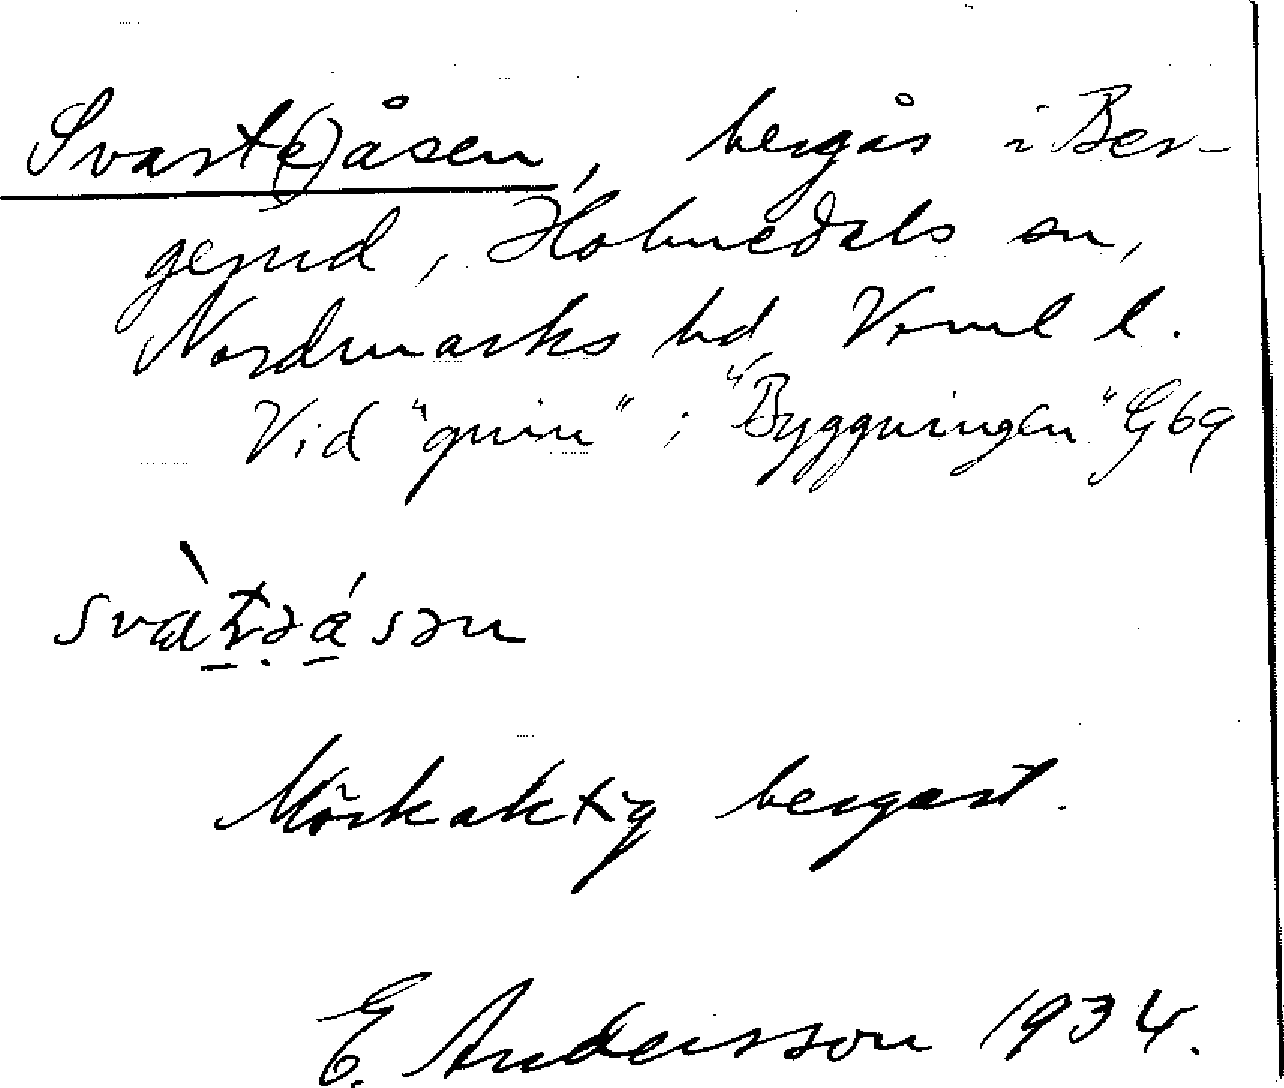 Svart(e)åsen, bergås i Ber-
gerud, Holmedals sn,
Nordmarks hd, Verml l.
Vid "grini" i "Byggningen" Gbg
svàʈəásən
Mörkaktig bergart.
E. Andersson 1934.